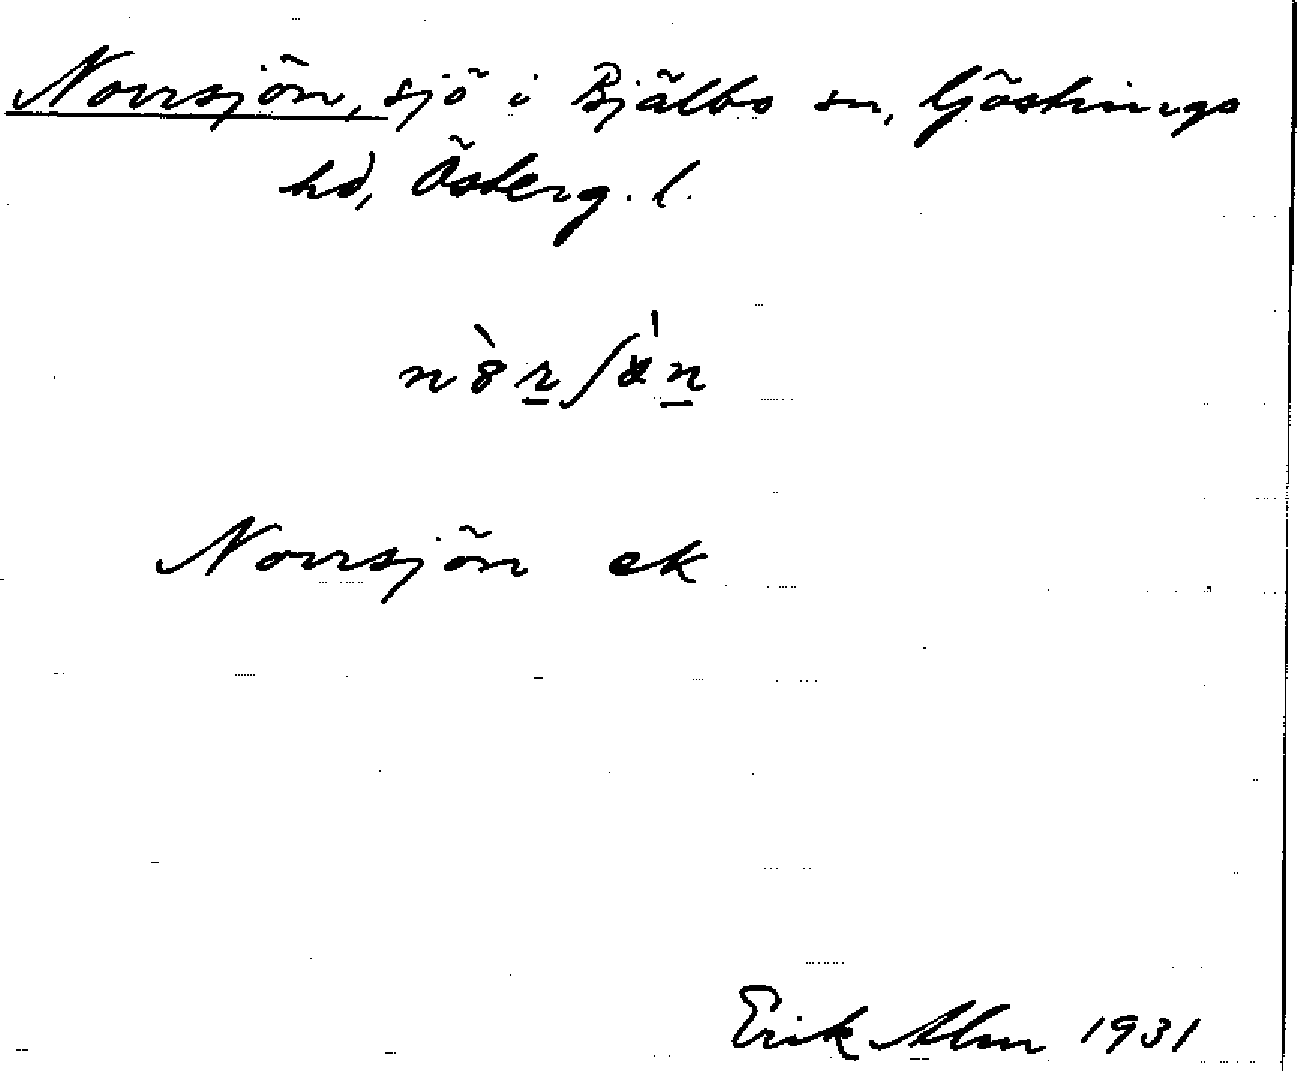 Norrsjön, sjö i Bjälbo sn, Göstrings
hd, Österg. l.
Norrsjön ek
Erik Alm 1931